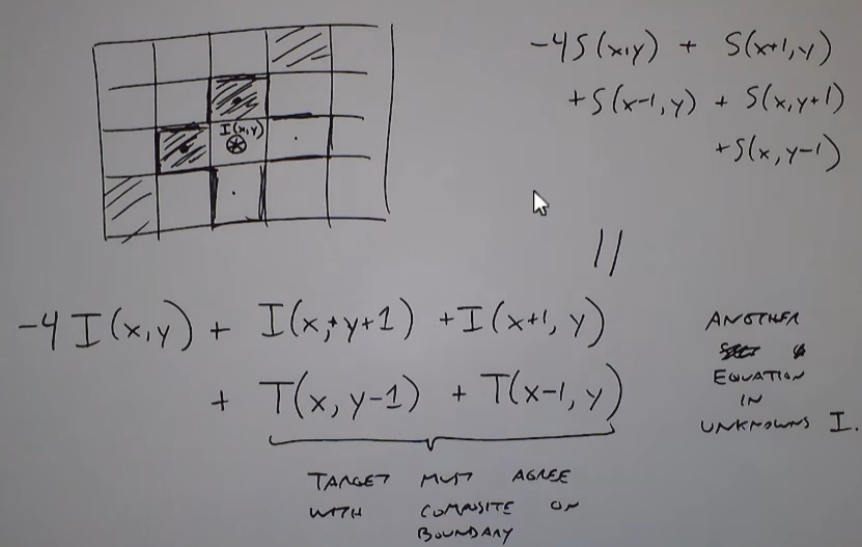 -4S(x,y) + S(x+1,y)
+S(x-1,y) + S(x,y+1)
+S(x,y-1)
I(x,y)
||
-4 I(x,y) + I(x,+y+1) +I(x+1,y)
+ T(x,y-1) + T(x-1,y)
TARGET MUST AGREE
WITH COMPOSITE ON
BOUNDARY
ANOTHER
EQUATION
IN
UNKNOWNS I.